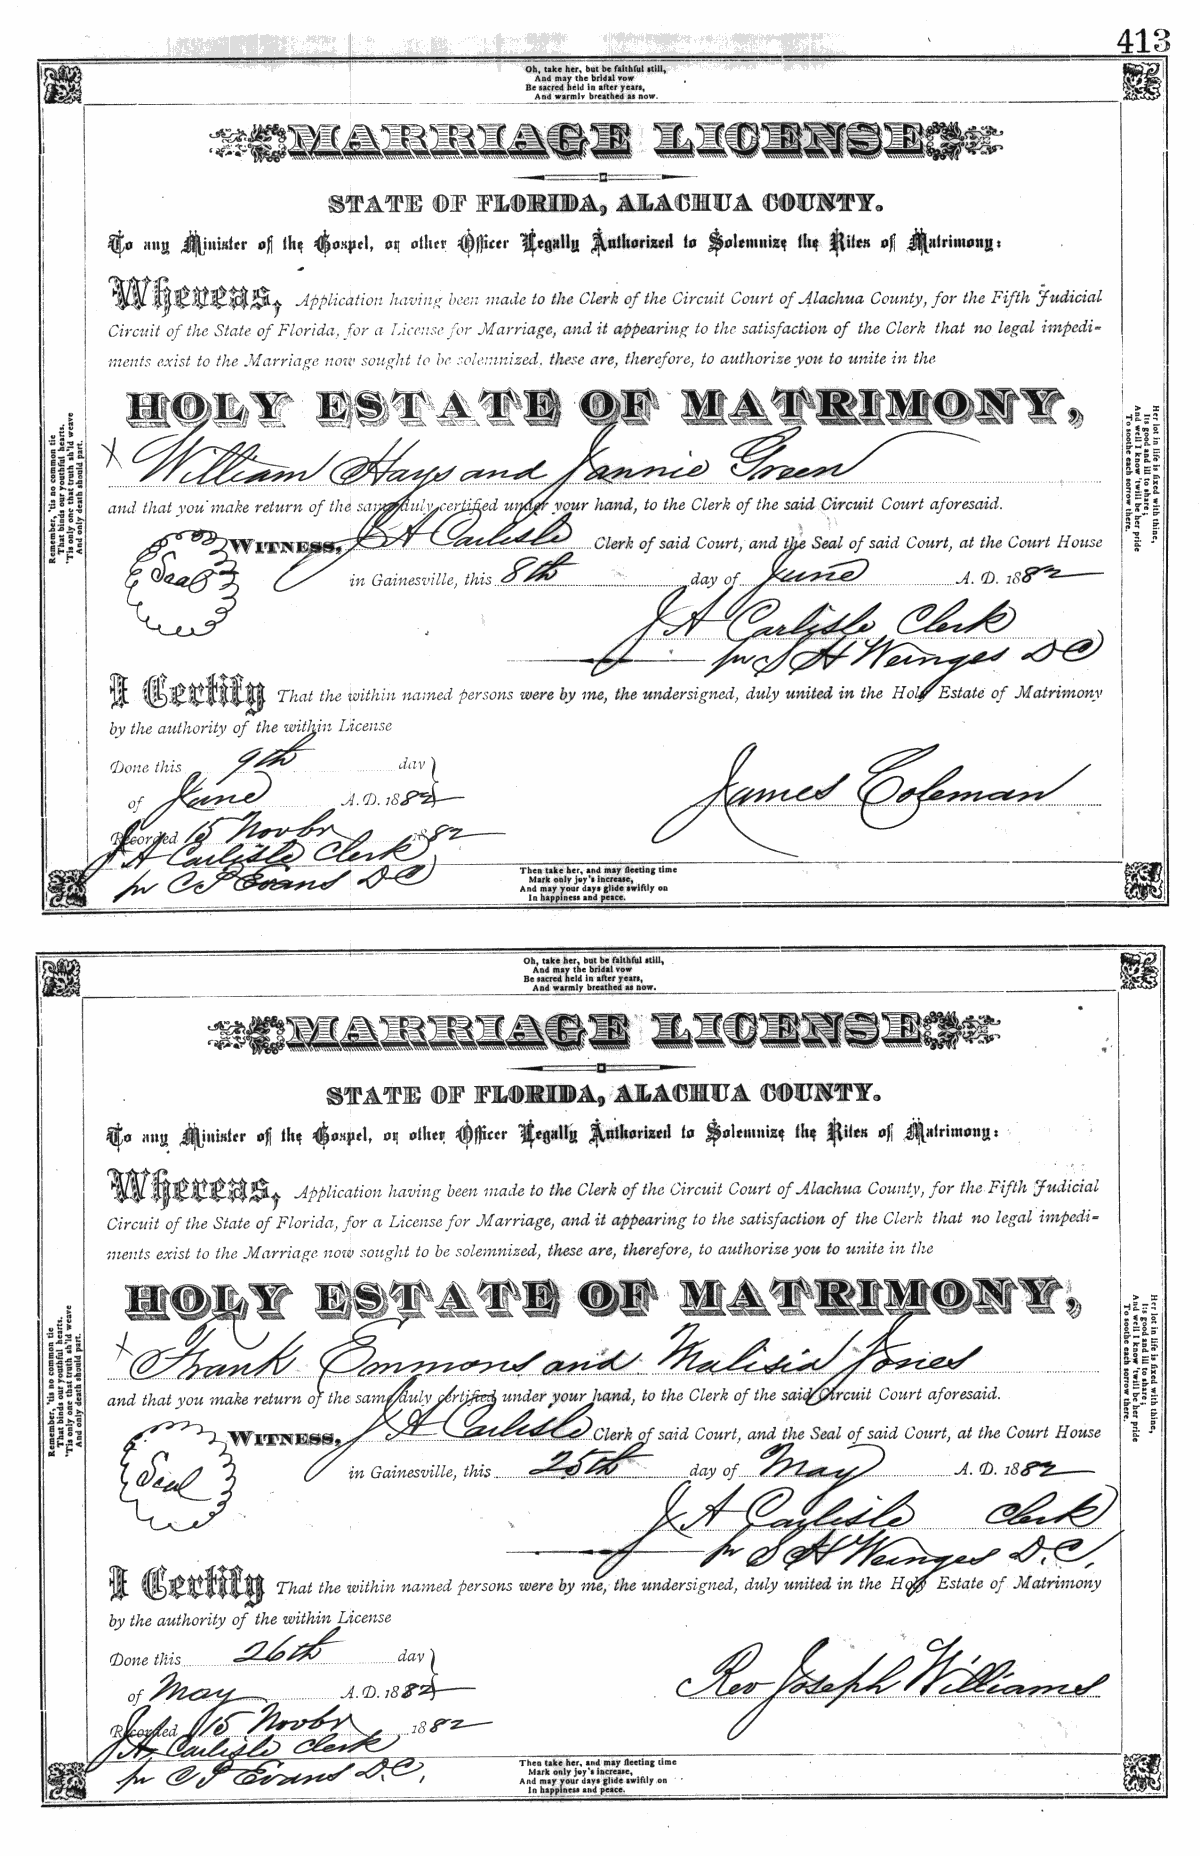 413
Oh, take her, but be faithful still,
And may the bridal vow
Be sacred held in after years,
And warmly breathed as now.
MARRIAGE LICENSE
STATE OF FLORIDA, ALACHUA COUNTY.
To any Minister of the Gospel, or other Officer Legally Authorized to Solemnize the Rites of Matrimony:
Whereas, Application having been made to the Clerk of the Circuit Court of Alachua County, for the Fifth Judicial
Circuit of the State of Florida, for a License for Marriage, and it appearing to the satisfaction of the Clerk that no legal impedi-
ments exist to the Marriage now sought to be solemnized, these are, therefore, to authorize you to unite in the
HOLY ESTATE OF MATRIMONY,
x William Hays and Jannie Green
and that you make return of the same duly certified under your hand, to the Clerk of the said Circuit Court aforesaid.
Seal
WITNESS, J A Carlisle Clerk of said Court, and the Seal of said Court, at the Court House
in Gainesville, this 8th day of June A. D. 1882
J A Carlisle Clerk
pr S H Weinges D C
I Certify That the within named persons were by me, the undersigned, duly united in the Holy Estate of Matrimony
by the authority of the within License
Done this 9th day
of June A. D. 1882
James Coleman
Recorded 15 Novbr 1882
J A Carlisle Clerk
pr C P Evans D C
Remember, 'tis no common tie
That binds our youthful hearts,
'Tis only one that truth sh'ld weave
And only death should part.
Her lot in life is fixed with thine,
Its good and ill to share;
And well I know 'twill be her pride
To soothe each sorrow there.
Then take her, and may fleeting time
Mark only joy's increase,
And may your days glide swiftly on
In happiness and peace.
Oh, take her, but be faithful still,
And may the bridal vow
Be sacred held in after years,
And warmly breathed as now.
MARRIAGE LICENSE
STATE OF FLORIDA, ALACHUA COUNTY.
To any Minister of the Gospel, or other Officer Legally Authorized to Solemnize the Rites of Matrimony:
Whereas, Application having been made to the Clerk of the Circuit Court of Alachua County, for the Fifth Judicial
Circuit of the State of Florida, for a License for Marriage, and it appearing to the satisfaction of the Clerk that no legal impedi-
ments exist to the Marriage now sought to be solemnized, these are, therefore, to authorize you to unite in the
HOLY ESTATE OF MATRIMONY,
x Frank Emmons and Malisia Jones
and that you make return of the same duly certified under your hand, to the Clerk of the said Circuit Court aforesaid.
Seal
WITNESS, J A Carlisle Clerk of said Court, and the Seal of said Court, at the Court House
in Gainesville, this 25th day of May A. D. 1882
J A Carlisle Clerk
pr S H Weinges D.C.
I Certify That the within named persons were by me, the undersigned, duly united in the Holy Estate of Matrimony
by the authority of the within License
Done this 26th day
of May A. D. 1882
Rev Joseph Williams
Recorded 15 Novbr 1882
J A Carlisle Clerk
pr C P Evans D.C.
Remember, 'tis no common tie
That binds our youthful hearts,
'Tis only one that truth sh'ld weave
And only death should part.
Her lot in life is fixed with thine,
Its good and ill to share;
And well I know 'twill be her pride
To soothe each sorrow there.
Then take her, and may fleeting time
Mark only joy's increase,
And may your days glide swiftly on
In happiness and peace.